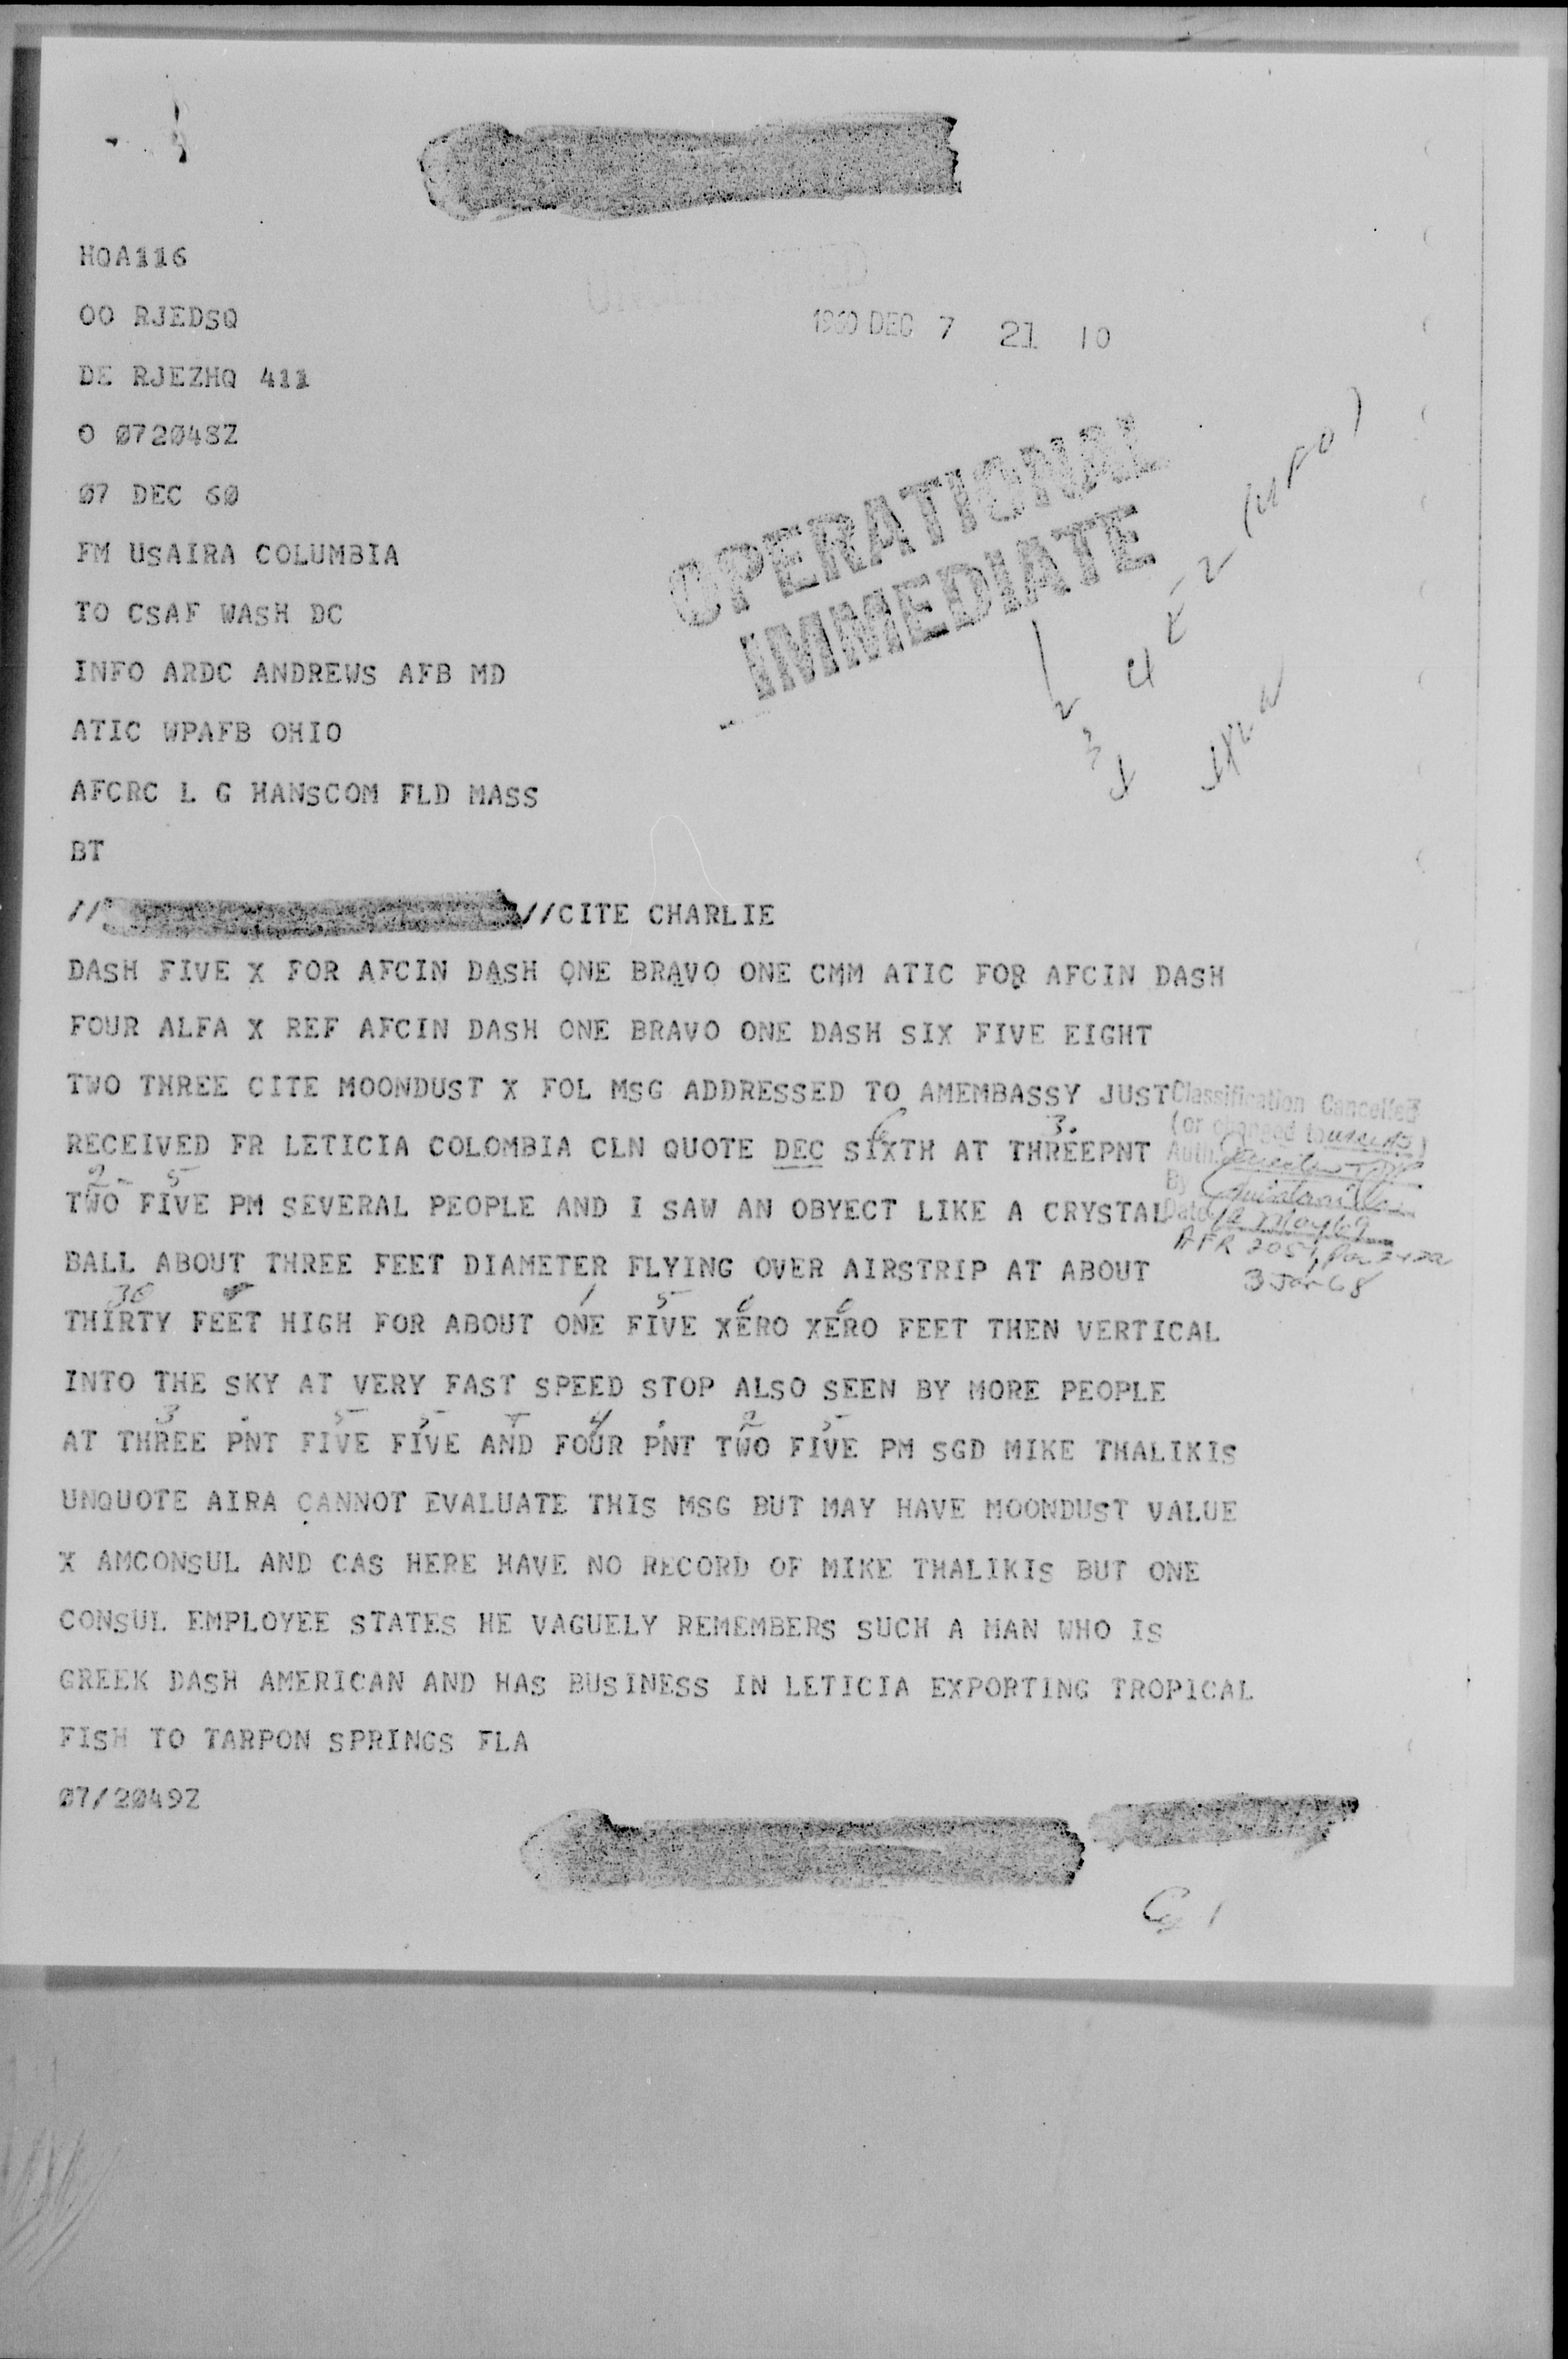 HQA116
OO RJEDSQ
1960 DEC 7 21 10
DE RJEZHQ 411
O 072048Z
07 DEC 60
FM USAIRA COLUMBIA
OPERATIONAL
IMMEDIATE
TO CSAF WASH DC
INFO ARDC ANDREWS AFB MD
ATIC WPAFB OHIO
AFCRC L G HANSCOM FLD MASS
BT
// //CITE CHARLIE
DASH FIVE X FOR AFCIN DASH ONE BRAVO ONE CMM ATIC FOR AFCIN DASH
FOUR ALFA X REF AFCIN DASH ONE BRAVO ONE DASH SIX FIVE EIGHT
TWO THREE CITE MOONDUST X FOL MSG ADDRESSED TO AMEMBASSY JUST
Classification Cancelled
(or changed to
6 3.
RECEIVED FR LETICIA COLOMBIA CLN QUOTE DEC SIXTH AT THREEPNT
Auth.
2 5
By Quintanilla
TWO FIVE PM SEVERAL PEOPLE AND I SAW AN OBYECT LIKE A CRYSTAL
Date
AFR 205-1,
BALL ABOUT THREE FEET DIAMETER FLYING OVER AIRSTRIP AT ABOUT
3 Jan 68
30 1 5 0 0
THIRTY FEET HIGH FOR ABOUT ONE FIVE XERO XERO FEET THEN VERTICAL
INTO THE SKY AT VERY FAST SPEED STOP ALSO SEEN BY MORE PEOPLE
3 . 5 5 + 4 . 2 5
AT THREE PNT FIVE FIVE AND FOUR PNT TWO FIVE PM SGD MIKE THALIKIS
UNQUOTE AIRA CANNOT EVALUATE THIS MSG BUT MAY HAVE MOONDUST VALUE
X AMCONSUL AND CAS HERE HAVE NO RECORD OF MIKE THALIKIS BUT ONE
CONSUL EMPLOYEE STATES HE VAGUELY REMEMBERS SUCH A MAN WHO IS
GREEK DASH AMERICAN AND HAS BUSINESS IN LETICIA EXPORTING TROPICAL
FISH TO TARPON SPRINGS FLA
07/2049Z